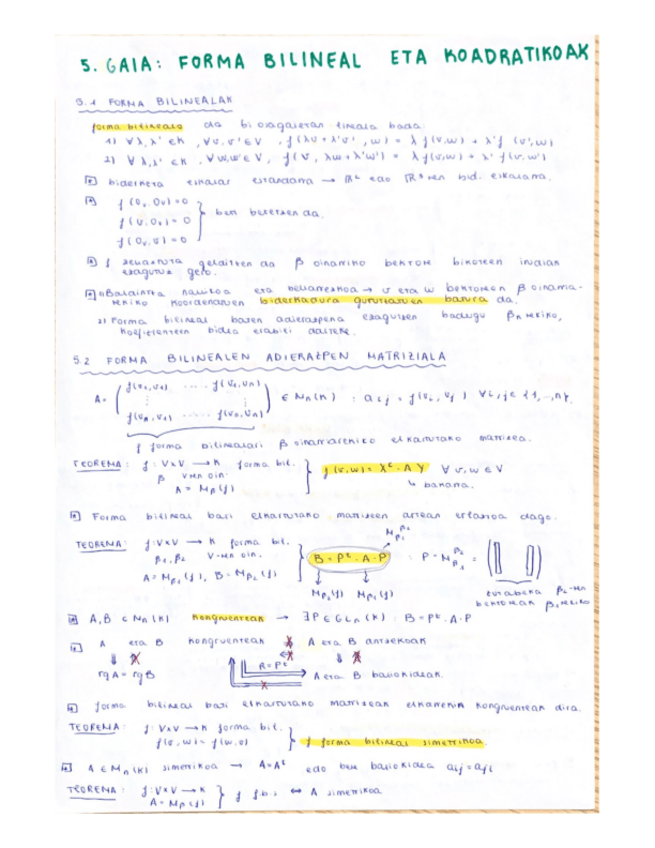 5. GAIA: FORMA BILINEAL ETA KOADRATIKOAK
5.1 FORMA BILINEALAK
forma bilineala da bi osagaietan lineala bada.
1) ∀λ,λ' ∈ K, ∀v,v' ∈ V, f(λv + λ'v', w) = λ f(v,w) + λ' f(v',w)
2) ∀λ,λ' ∈ K, ∀w,w' ∈ V, f(v, λw + λ'w') = λ f(v,w) + λ' f(v,w')
biderketa eskalar estandarra → ℝ² edo ℝ³ren bid. eskalarra.
f(0ᵥ,0ᵥ) = 0
f(v,0ᵥ) = 0 } beti betetzen da.
f(0ᵥ,v) = 0
f zehaztuta gelditzen da β oinarriko bektore bikoteen irudian
ezagutuz gero.
1) Baldintza nahikoa eta beharrezkoa → v eta w bektoreen β oinarria-
rekiko koordenatuen biderkadura gurutzatuen batura da.
2) Forma bilineal baten adierazpena ezagutzen badugu β rekiko,
koefizienteen bidez erabili daiteke.
5.2 FORMA BILINEALEN ADIERAZPEN MATRIZIALA
A = ( f(v₁,v₁) ..... f(v₁,vₙ) ⋮ ⋮ f(vₙ,v₁) ..... f(vₙ,vₙ) ) ∈ Mₙ(K) : aᵢⱼ = f(vᵢ,vⱼ) ∀i,j ∈ {1,...,n}.
f forma bilinealari β oinarriarekiko elkartutako matrizea.
TEOREMA: f: V×V → K forma bil. } f(v,w) = Xᵗ·A·Y ∀v,w ∈ V
β V-ren oin.
A = M_β(f)
↳ bakarra.
Forma bilineal bati elkartutako matrizeen artean erlazioa dago.
TEOREMA: f: V×V → K forma bil. } B = Pᵗ·A·P : P = M_β₁^β₂
β₁,β₂ V-ren oin.
A = M_β₁(f), B = M_β₂(f)
M_β₁^β₂
M_β₂(f) M_β₁(f)
zutabeka β₂-ren
bektoreak β₁rekiko
A,B ∈ Mₙ(K) kongruenteak → ∃P ∈ GLₙ(K) : B = Pᵗ·A·P
A eta B kongruenteak A eta B antzekoak
rg A = rg B R = Pᵗ A eta B baliokideak.
forma bilineal bati elkartutako matrizeak elkarrekin kongruenteak dira.
TEOREMA: f: V×V → K forma bil. } f forma bilineal simetrikoa.
f(v,w) = f(w,v)
A ∈ Mₙ(K) simetrikoa → A = Aᵗ edo bere baliokidea aᵢⱼ = aⱼᵢ
TEOREMA: f: V×V → K } f f.b.s ⇔ A simetrikoa
A = M_β(f)